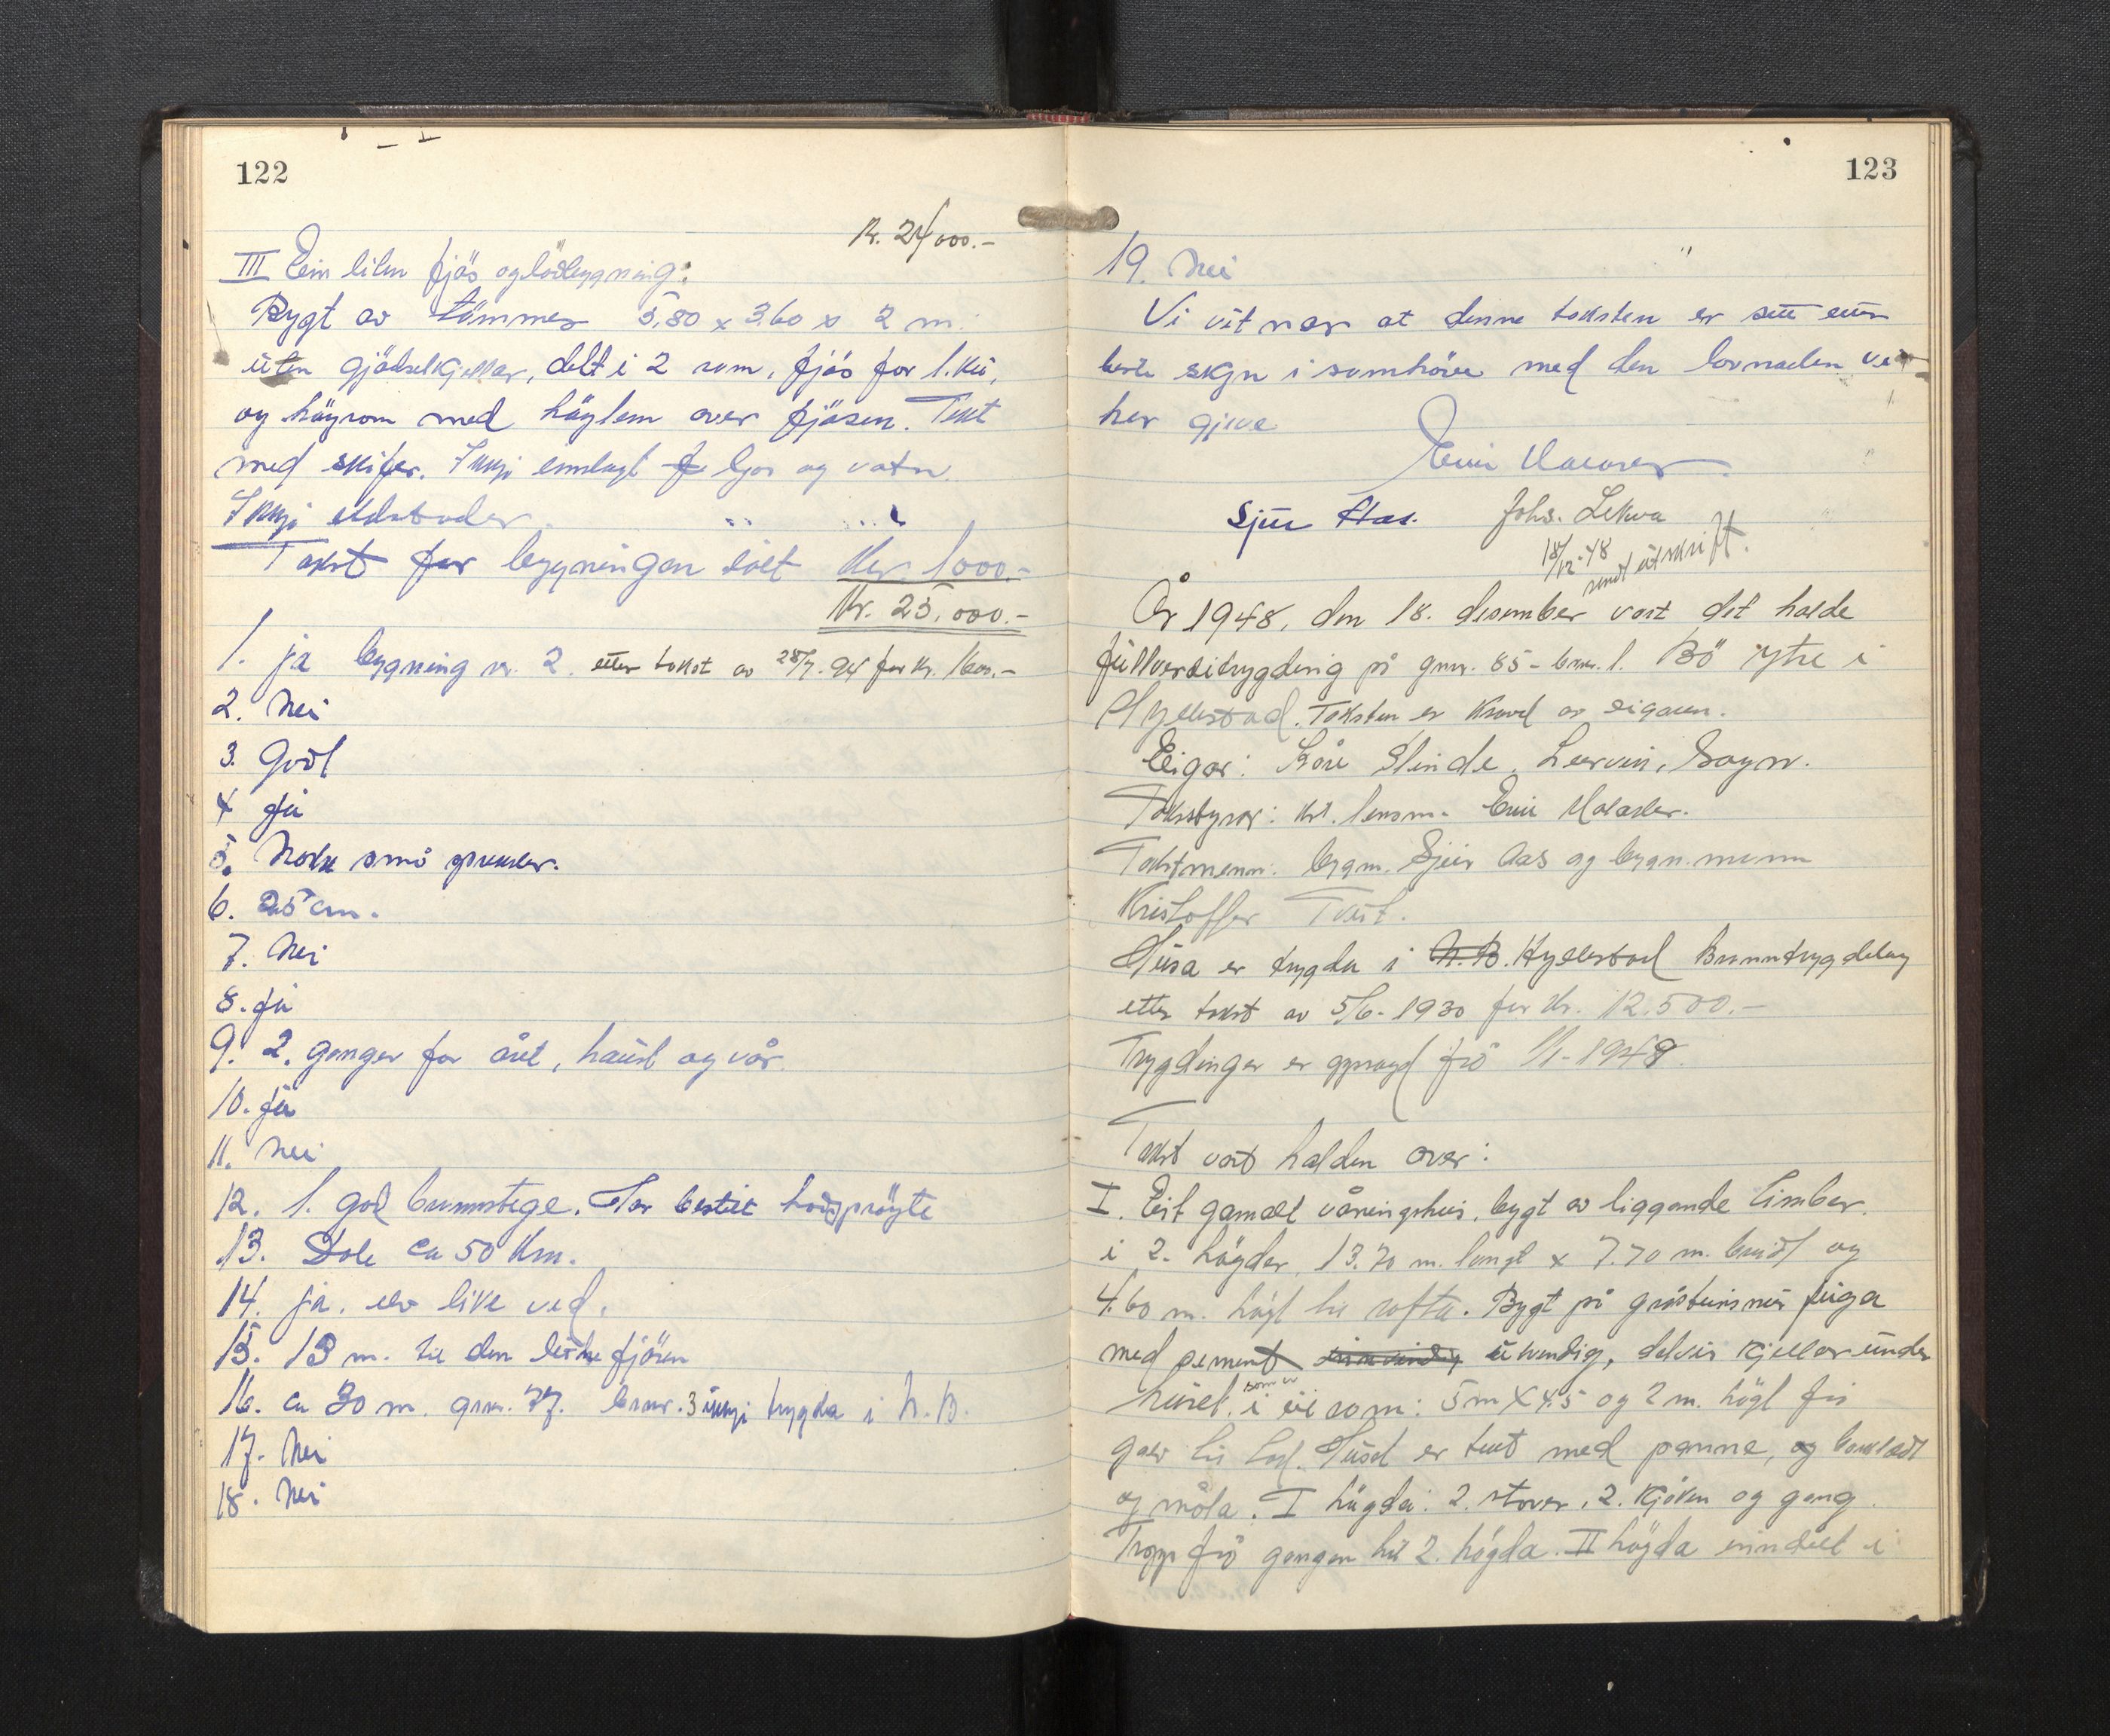 122
Kr. 24000.-
III Ein liten fjös og lödbygning:
Bygt av tömmer 5,80 x 3,60 x 2 m
uten gjödselkjellar, delt i 2 rom, fjös for 1. ku,
og höyrom med höylem over fjösen. Tekt
med skifer. Inkji innlagt ljos og vatn
Inkji eldstader.
Takst for bygningen satt Kr. 1000.-
Kr. 25.000.-
1. ja bygning nr. 2. etter takst av 28/7. for kr. 1600.-
2. Nei
3. Godt
4 ja
5. Nokre små sprekker.
6. 25 cm.
7. Nei
8. ja
9. 2. gonger for året, haust og vår.
10. ja
11. Nei
12. 1. god brannstege. Har bestilt
13. Dale ca 50 Km.
14. ja. elv like ved.
15. 13 m. til den fjösen
16. ca 30 m. gnr. 77. bnr. 3 inkji trygda i N.B.
17. Nei
18. Nei
123
19. Nei
Vi vitnar at denne taksten er sett etter
beste skjn i samhöve med den lovnaden vi
her gjeve
Sjur Aas. Johs. Lekva
18/12-48
sendt utskrift.
År 1948, den 18. desember vart det halde
fullverditrygding på gnr. 85 - bnr. 1. Bö ytre i
Hyllestad. Taksten er Kravd av eigaren.
Eigar: Kåre Slinde, Leirvik, Sogn.
Takststyrar: kst. lensm.
Takstmenn: bygm. Sjur Aas og bygn. menn
Kristoffer Tveit.
Husa er trygda i N.B. Hyllestad Branntrygdelag
etter takst av 5/6-1930 for Kr. 12.500.-
Trygdinga er uppsagd frå 1/1-1949.
Takst vart halden over:
I. Eit gamalt våningshus, bygt av liggande timber.
i 2. högder, 13.70 m. langt x 7.70 m. breidt og
4.60 m. högt til rafta. Bygt på gråsteinsmur fuga
med sement innvendig utvendig, delvis Kjellar under
huset, som er i eit rom: 5 m X 4.5 og 2 m. högt frå
golv til tak. Huset er tekt med panne, og bordkledt
og måla. I högda: 2. stover, 2. Kjöken og gang.
Tropp frå gangen til 2. högda. II högda inndelt i